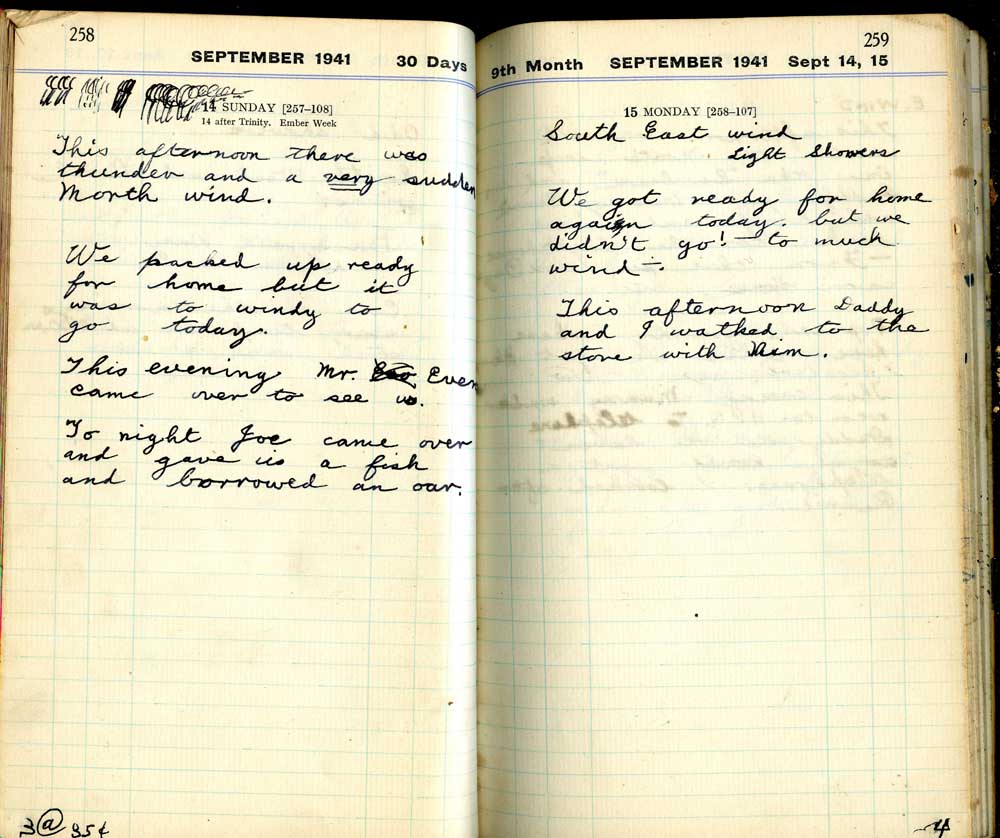 258
SEPTEMBER 1941 30 Days
14 SUNDAY [257–108]
14 after Trinity. Ember Week
This afternoon there was
thunder and a very sudden
North wind.
We packed up ready
for home but it
was to windy to
go today.
This evening Mr. Ever
came over to see us.
To night Joe came over
and gave us a fish
and borrowed an oar.
3 @ 35¢
259
9th Month SEPTEMBER 1941 Sept 14, 15
15 MONDAY [258–107]
South East wind
Light Showers
We got ready for home
again today. but we
didn't go! — to much
wind —.
This afternoon Daddy
and I walked to the
store with Him.
4